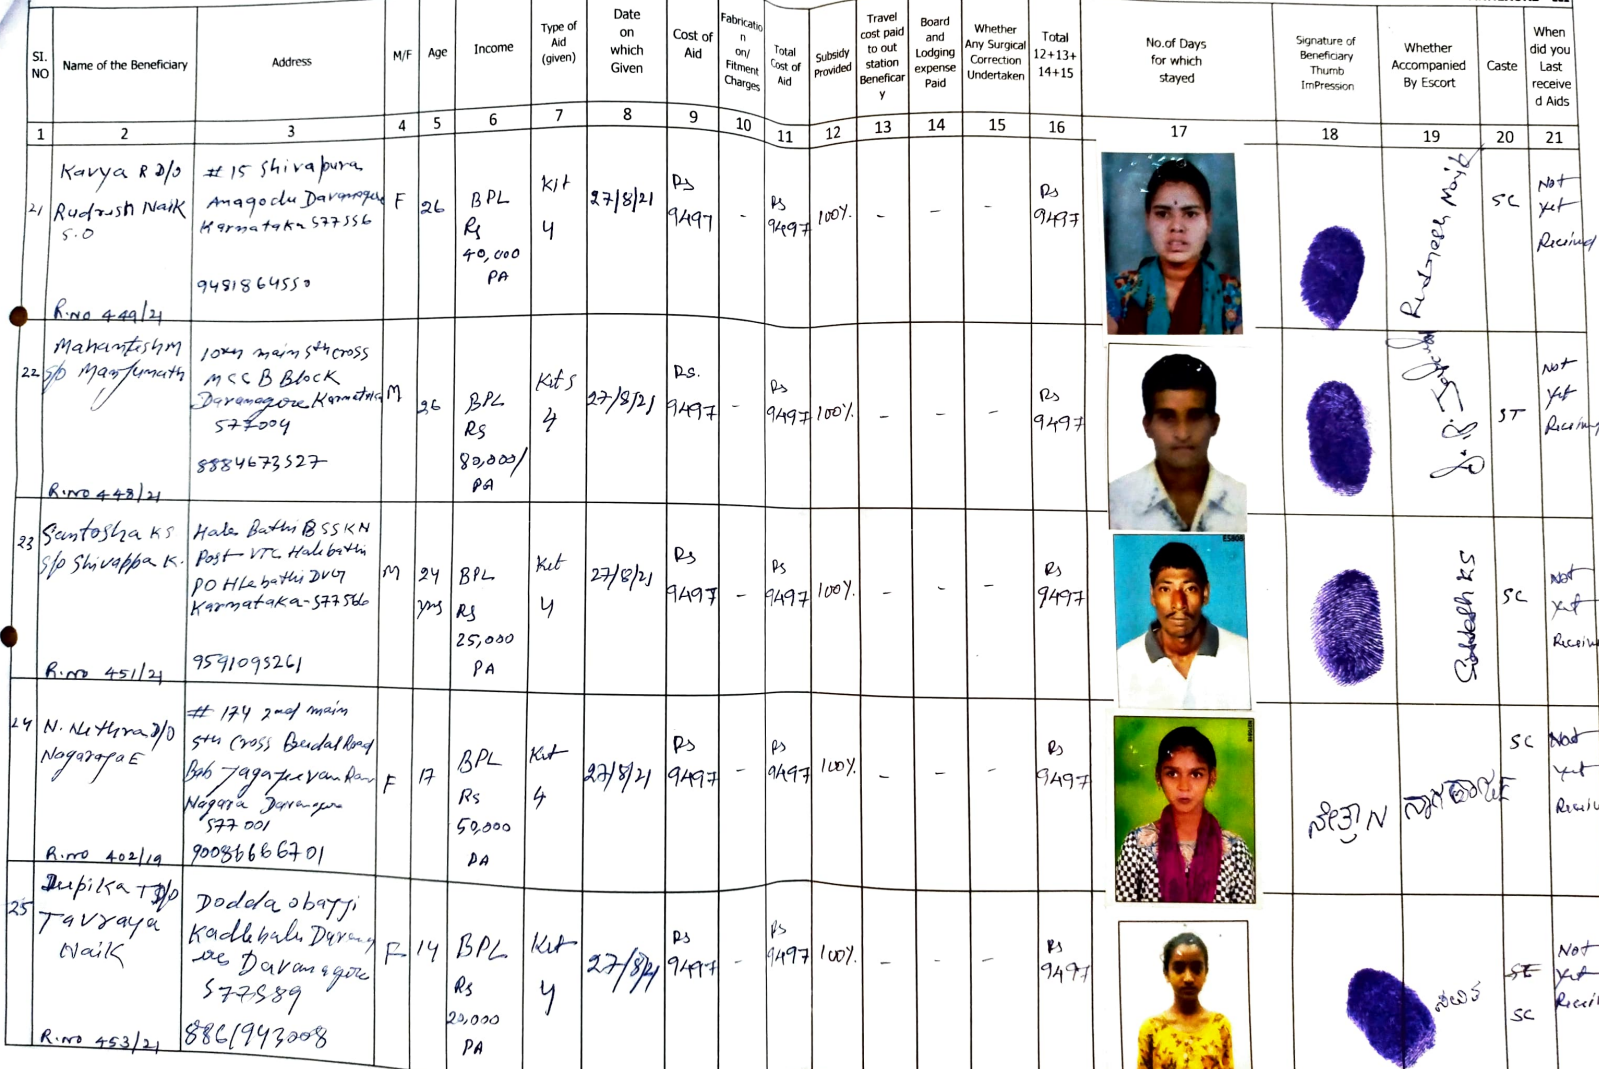 SI. NO
Name of the Beneficiary
Address
M/F
Age
Income
Type of Aid (given)
Date on which Given
Cost of Aid
Fabricatio n on/ Fitment Charges
Total Cost of Aid
Subsidy Provided
Travel cost paid to out station Beneficar y
Board and Lodging expense Paid
Whether Any Surgical Correction Undertaken
Total 12+13+ 14+15
No.of Days for which stayed
Signature of Beneficiary Thumb ImPression
Whether Accompanied By Escort
Caste
When did you Last receive d Aids
1 2 3 4 5 6 7 8 9 10 11 12 13 14 15 16 17 18 19 20 21
21
Kavya R D/O
Rudresh Naik
S.O
R.NO 449/21
# 15 Shivapura
Anagodu Davanagere
Karnataka 577556
9481864550
F
26
BPL
Rs
40,000
PA
Kit
4
27/8/21
Rs
9497
-
Rs
9497
100%
-
-
-
Rs
9497
Rudresh Naik
SC
Not
Yet
Received
22
Mahantesh M
S/o Manjunath
R.no 448/21
10th main 5th cross
MCC B Block
Davanagere Karnataka
577004
8884673527
M
26
BPL
Rs
80,000/
PA
Kit s
4
27/8/21
Rs.
9497
-
Rs
9497
100%
-
-
-
Rs
9497
ST
Not
Yet
Received
23
Santosha KS
S/o Shivappa K.
R.no 451/21
Hale Bathi BSSKN
Post VTC Halebathi
PO Hlebathi DVG
Karnataka-577566
9591095261
M
24
yrs
BPL
Rs
25,000
PA
Kit
4
27/8/21
Rs
9497
-
Rs
9497
100%
-
-
-
Rs
9497
Santosh KS
SC
Not
Yet
Received
24
N. Nethra D/O
Nagaraja E
R.no 402/19
# 174 2nd main
5th Cross Beedal Road
Bab Jagajeevan Ram
Nagara Davanagere
577001
90086666701
F
17
BPL
Rs
50,000
PA
Kit
4
27/8/21
Rs
9497
-
Rs
9497
100%
-
-
-
Rs
9497
ನೇತ್ರಾ N
ನಾಗರಾಜ್ E
SC
Not
Yet
Received
25
Deepika T D/o
Tavraya
Naik
R.no 453/21
Dodda obajji
Kadlebalu Davanag
ere Davanagere
577589
8861943008
F
14
BPL
Rs
20,000
PA
Kit
4
27/8/21
Rs
9497
-
Rs
9497
100%
-
-
-
Rs
9497
SC
Not
Yet
Received